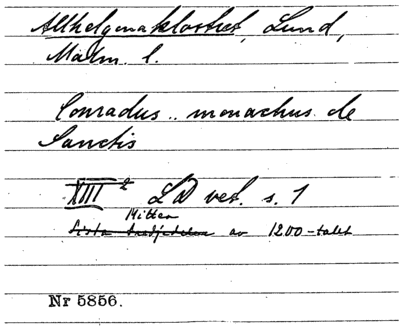 Allhelgonaklostret, Lund,
Malm. l.
Conradus .. monachus de
Sanctis
XIII 2 LD vet. s. 1
Mitten
Sista tredjedelen av 1200-talet
Nr 5856.